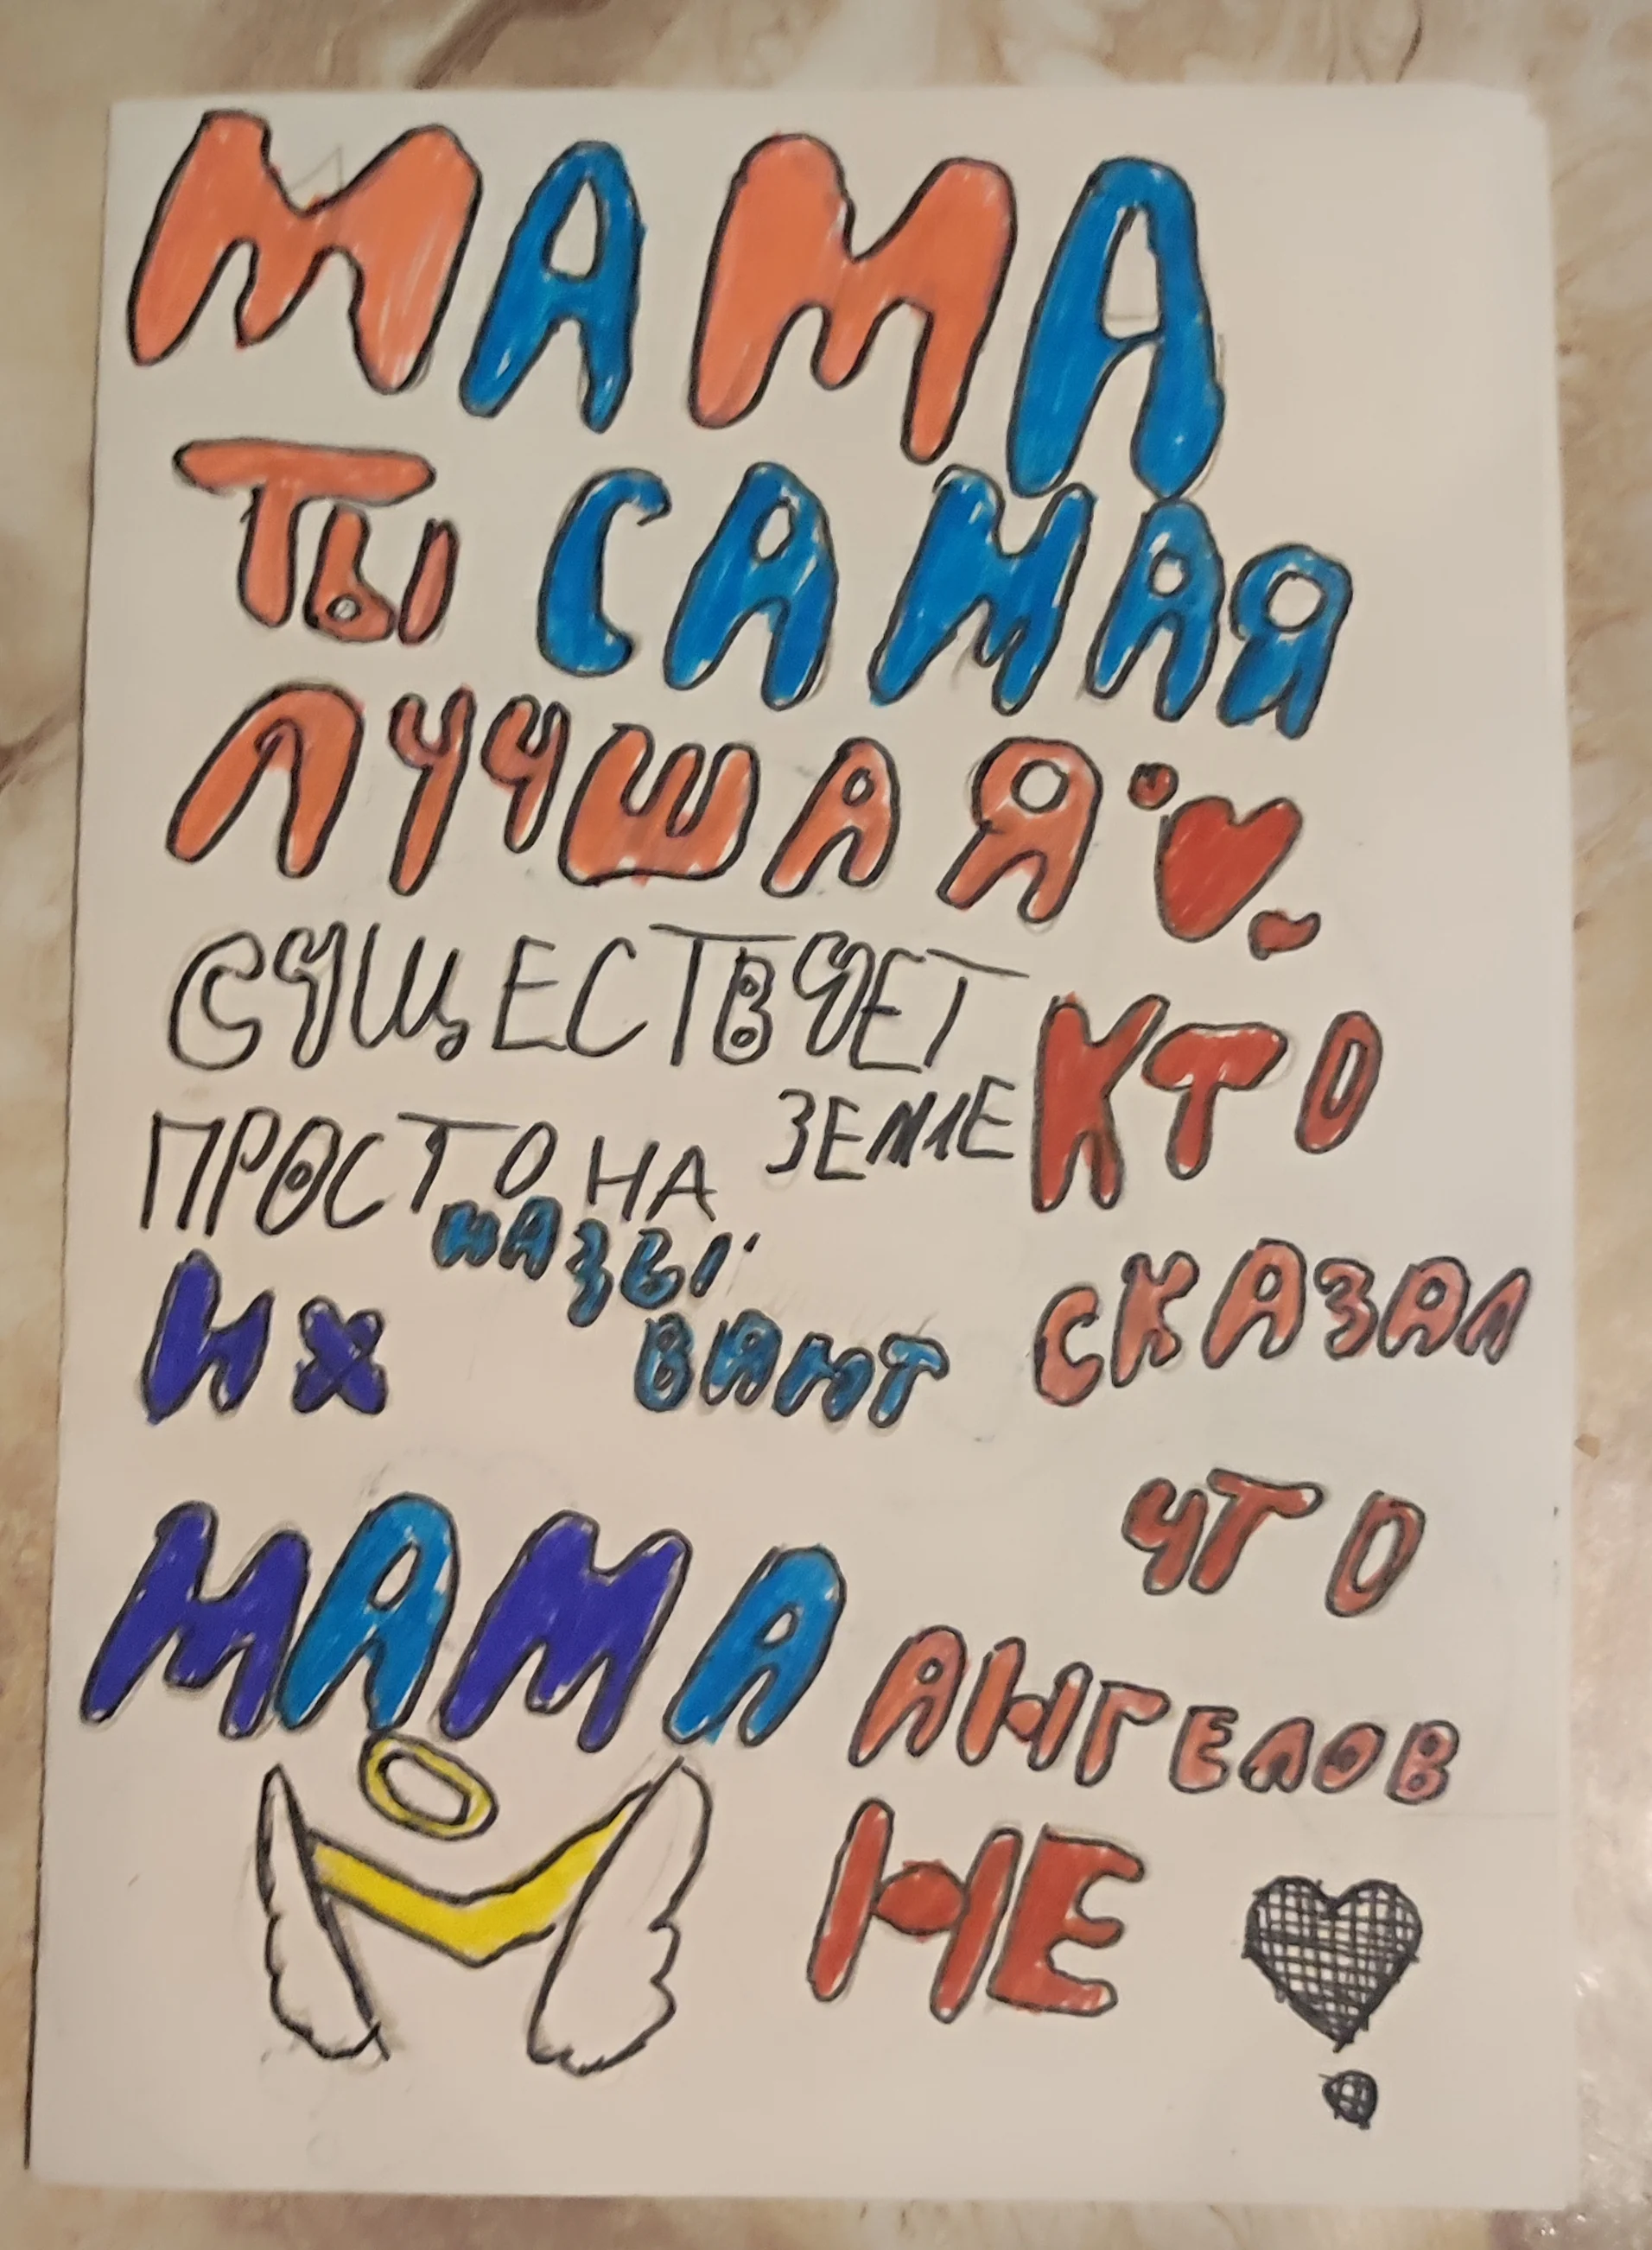 МАМА
ТЫ САМАЯ
ЛУЧШАЯ
КТО
СКАЗАЛ
ЧТО
АНГЕЛОВ
НЕ
СУЩЕСТВУЕТ
ПРОСТО НА ЗЕМЛЕ
ИХ НАЗЫ
ВАЮТ
МАМА